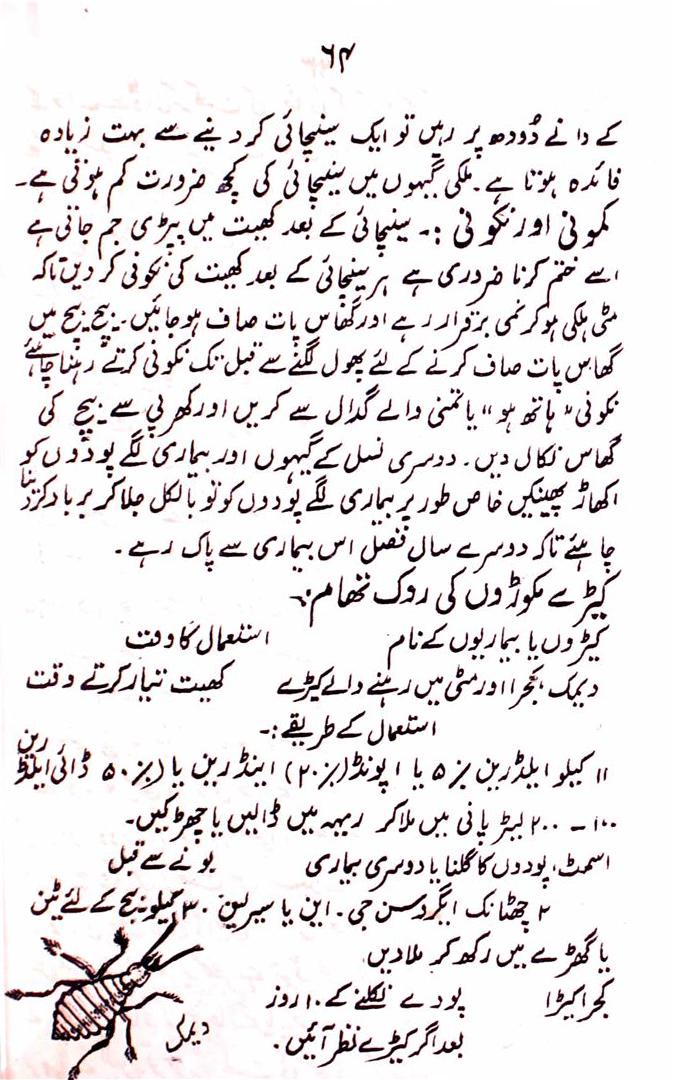 ۶۴
کے دانے دُودھ پر رہیں تو ایک سینچائی کر دینے سے بہت زیادہ
فائدہ ہوتا ہے۔ ملکی گیہوں میں سینچائی کی کچھ ضرورت کم ہوتی ہے۔
کمونی اور نکونی :۔ سینچائی کے بعد کھیت میں پپڑی جم جاتی ہے
اسے ختم کرنا ضروری ہے ہر سینچائی کے بعد کھیت کی نکونی کر دیں تاکہ
مٹی ہلکی ہو کر نمی برقرار رہے اور گھاس پات صاف ہو جائیں۔ بیچ بیچ میں
گھاس پات صاف کرنے کے لئے پھول لگنے سے قبل تک نکونی کرتے رہنا چاہئے
نکونی "ہاتھ ہو" یا تمنی والے گدال سے کریں اور کھرپی سے بیچ کی
گھاس نکال دیں۔ دوسری نسل کے گیہوں اور بیماری لگے پودوں کو
اکھاڑ پھینکیں خاص طور پر بیماری لگے پودوں کو تو بالکل جلا کر برباد کر دینا
چاہئے تاکہ دوسرے سال فصل اس بیماری سے پاک رہے۔
کیڑے مکوڑوں کی روک تھام :۔
کیڑوں یا بیماریوں کے نام استعمال کا وقت
دیمک، کجرا اور مٹی میں رہنے والے کیڑے کھیت تیار کرتے وقت
استعمال کے طریقے :۔
۱۱ کیلو ایلڈرین ۵٪ یا ۱ پونڈ (۲۰٪) اینڈرین یا (۵۰٪ ڈائی ایلڈرین
۱۰۰ ۔ ۲۰۰ لیٹر پانی میں ملا کر ریہہ میں ڈالیں یا چھڑکیں۔
اسمٹ، پودوں کا گلنا یا دوسری بیماری بونے سے قبل
۲ چھٹانک ایگروسن جی۔ این یا سیرلین ۳۰ کیلو بیج کے لئے ٹین
یا گھڑے میں رکھ کر ملا دیں
کجرا کیڑا پودے نکلنے کے ۱۰ روز
بعد اگر کیڑے نظر آئیں۔
دیمک